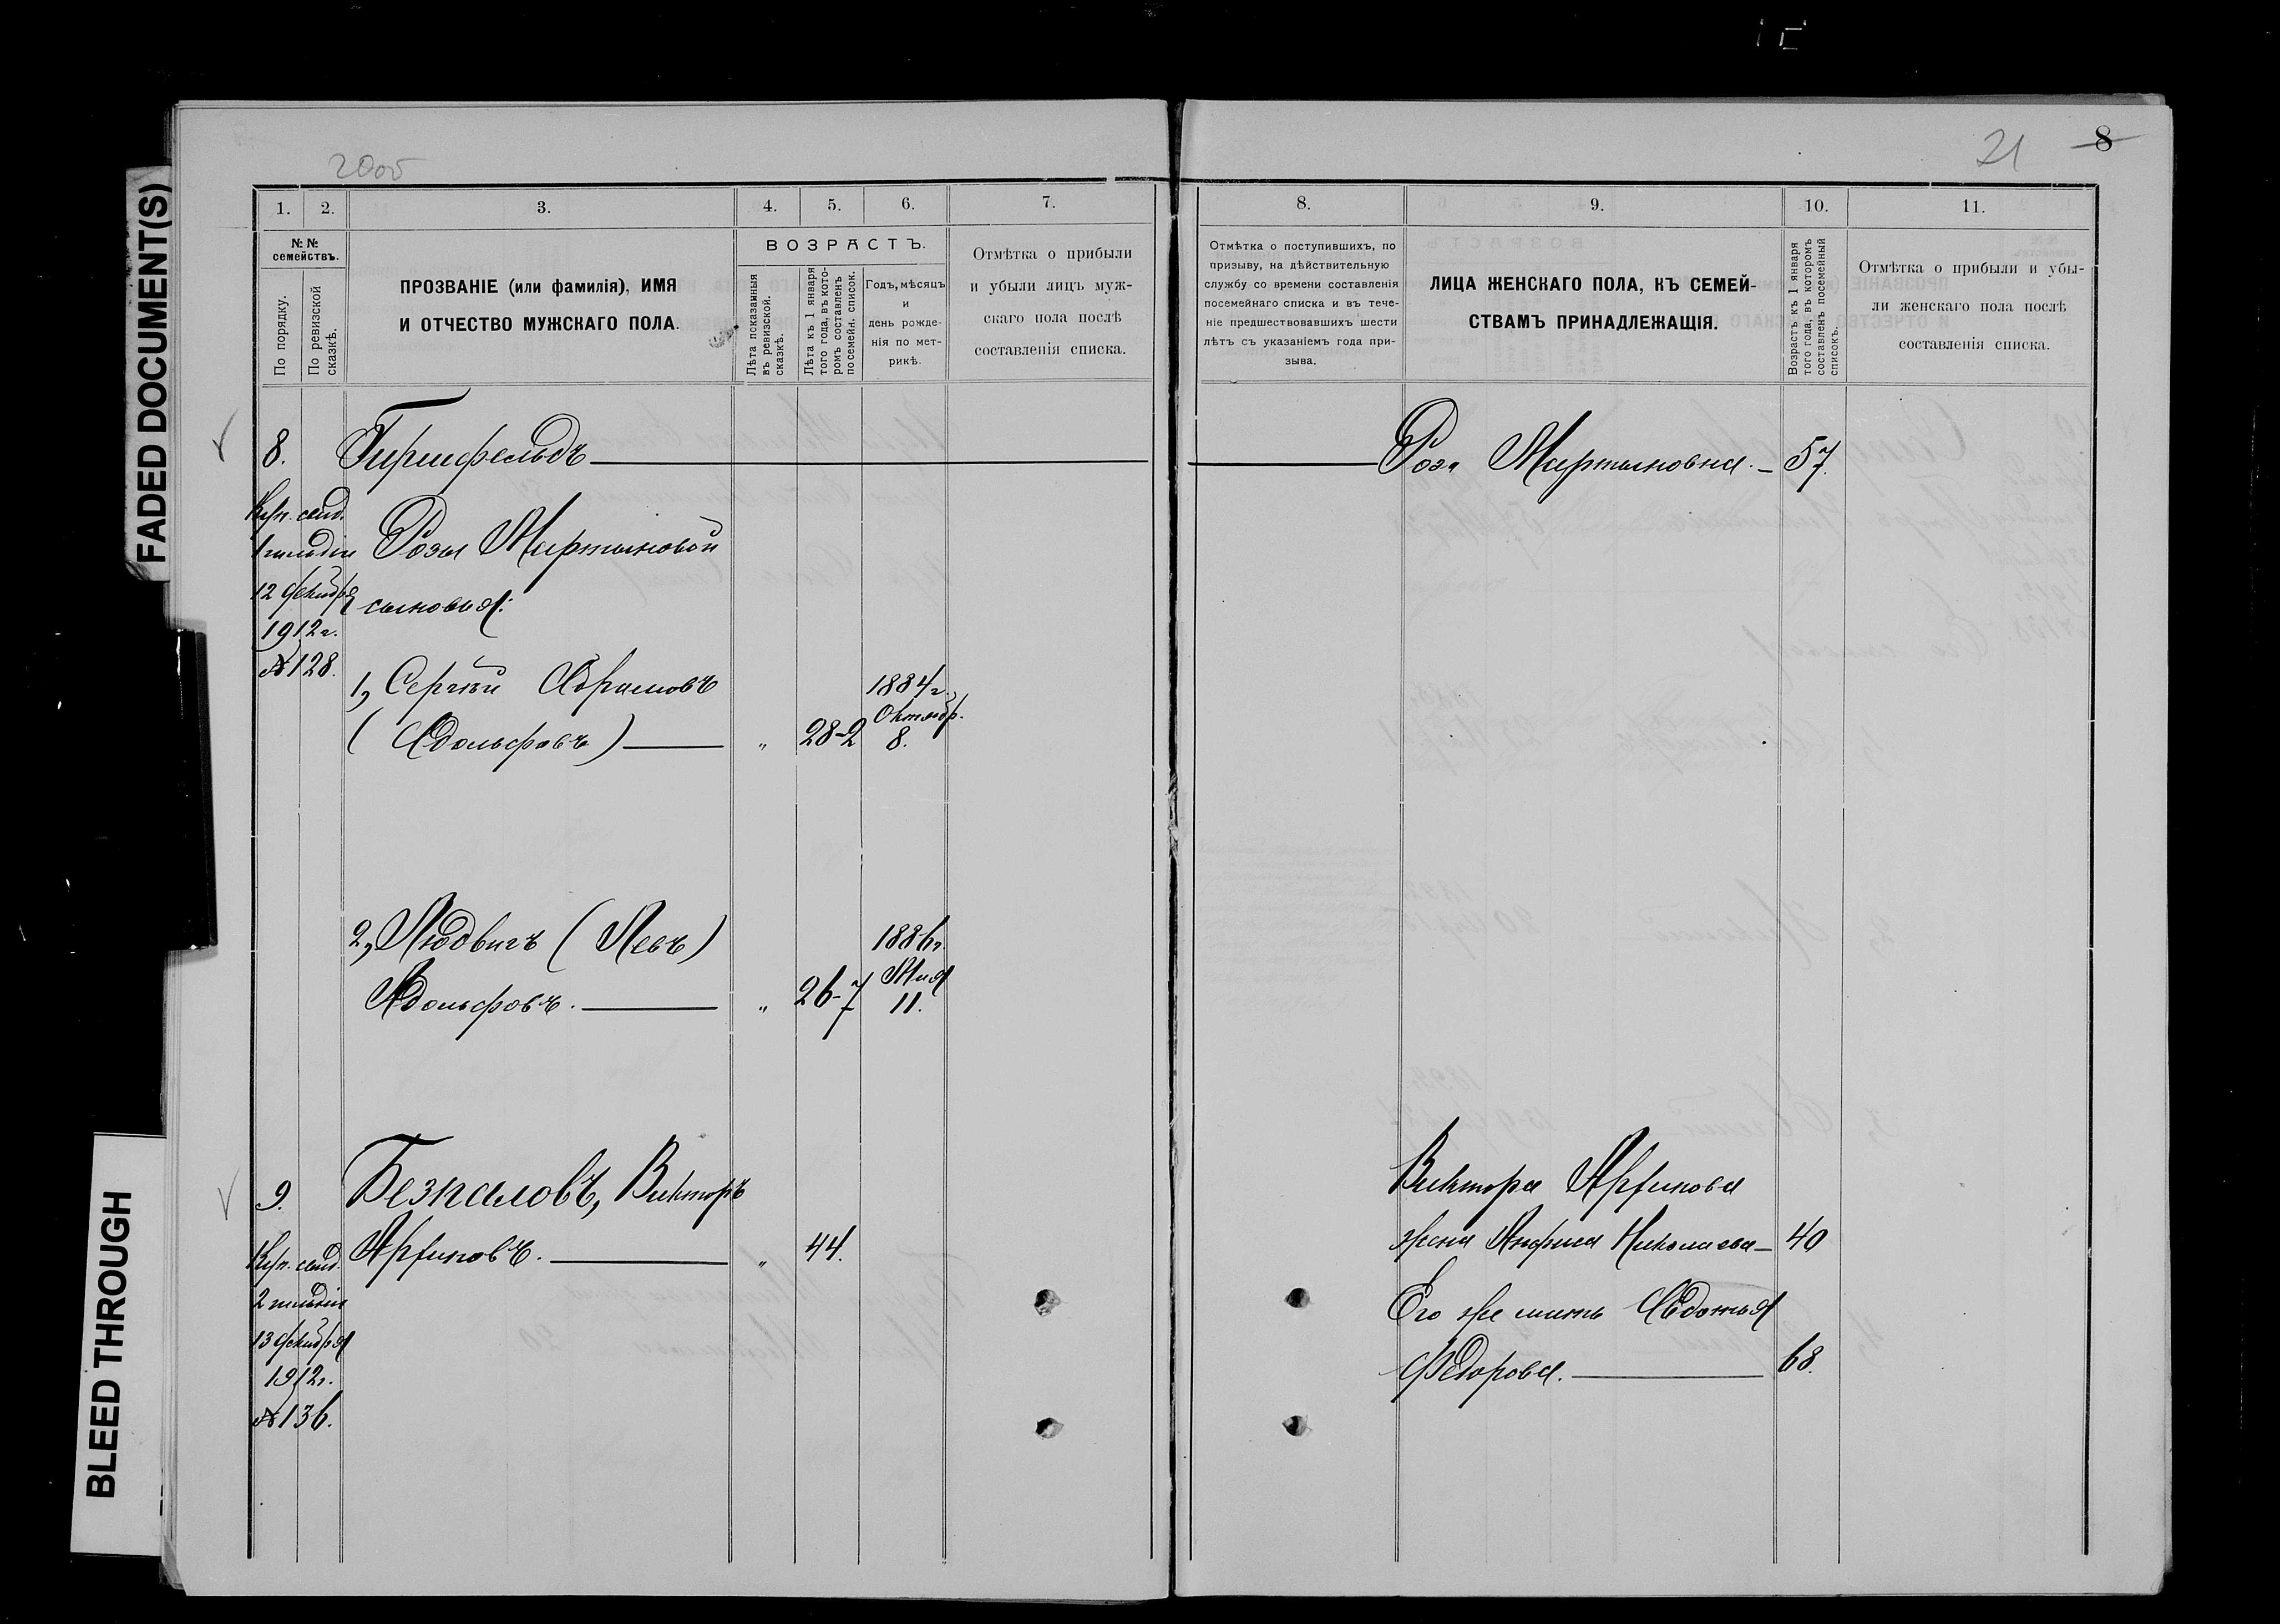 FADED DOCUMENT(S)
BLEED THROUGH
21 8
1. 2. 3. 4. 5. 6. 7.
№ № семействъ.
По порядку.
По ревизской сказкѣ.
ПРОЗВАНІЕ (или фамилія), ИМЯ
И ОТЧЕСТВО МУЖСКАГО ПОЛА.
ВОЗРАСТЪ.
Лѣта показанныя
въ ревизской.
сказкѣ.
Лѣта къ 1 января
того года, въ кото-
ромъ составленъ
посемейн. списокъ.
Годъ, мѣсяцъ
и
день рожде-
нія по мет-
рикѣ.
Отмѣтка о прибыли
и убыли лицъ муж-
скаго пола послѣ
составленія списка.
8. Гиршфельдъ
Куп. свид.
1 гильдіи
12 декабря
1912 г.
№ 128.
Розы Мартыновой
сыновья:
1, Сергѣй Абрамовъ
(Адольфовъ) " 28-2
1884 г.
Октябр.
8.
2, Людвигъ (Левъ)
Адольфовъ. " 26-7
1886 г.
Мая
11.
9. Безпаловъ, Викторъ
Куп. свид.
2 гильдіи
13 декабря
1912 г.
№ 136.
" 44.
8. 9. 10. 11.
Отмѣтка о поступившихъ, по
призыву, на дѣйствительную
службу со времени составленія
посемейнаго списка и въ тече-
ніе предшествовавшихъ шести
лѣтъ съ указаніемъ года при-
зыва.
ЛИЦА ЖЕНСКАГО ПОЛА, КЪ СЕМЕЙ-
СТВАМЪ ПРИНАДЛЕЖАЩІЯ.
Возрастъ къ 1 января
того года, въ которомъ
составленъ посемейный
списокъ.
Отмѣтка о прибыли и убы-
ли женскаго пола послѣ
составленія списка.
Роза Мартыновна. 57.
Виктора
жена Николаева 40
Его же мать Авдотья
Федорова. 68.